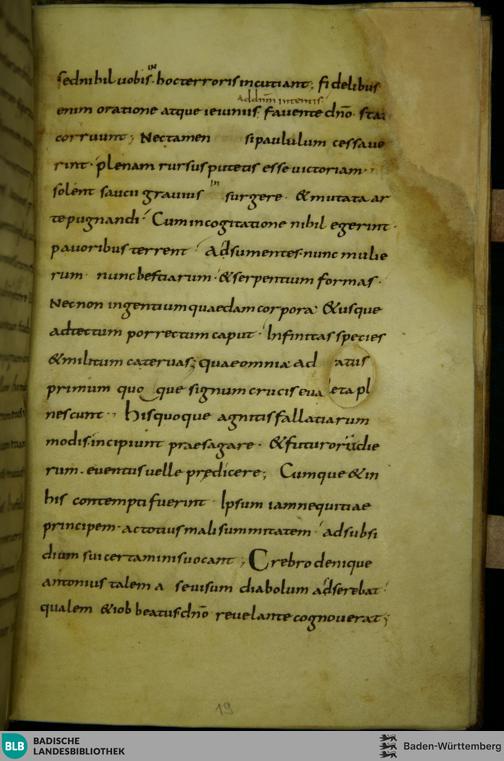 sed nihil uobis in hoc terroris incutiant; fidelibus
enim oratione atque ieiuniis fauente dno sta
corruunt; Nec tamen si paululum cessaue
rint plenam rursus putetis esse uictoriam
solent saucii grauius insurgere & mutata ar
te pugnandi Cum in cogitatione nihil egerint
pauoribus terrent Adsumentes nunc mulie
rum nunc bestiarum & serpentium formas
Nec non ingentium quaedam corpora & usque
ad tectum porrectum caput Infinitas species
& militum cateruas; quae omnia ad atus
primum quo que signum crucis eua eta pl
nescunt his quoque agnitis fallatiarum
modis incipiunt praesagare & futuroru die
rum euentus uelle predicere; Cumque & in
his contempti fuerint Ipsum iam nequitiae
principem ac totius mali summitatem ad subsi
dium sui certaminis uocant; Crebro denique
antonius talem a se uisum diabolum adserebat
qualem & iob beatus dno reuelante cognouerat;
19
BLB BADISCHE LANDESBIBLIOTHEK
Baden-Württemberg